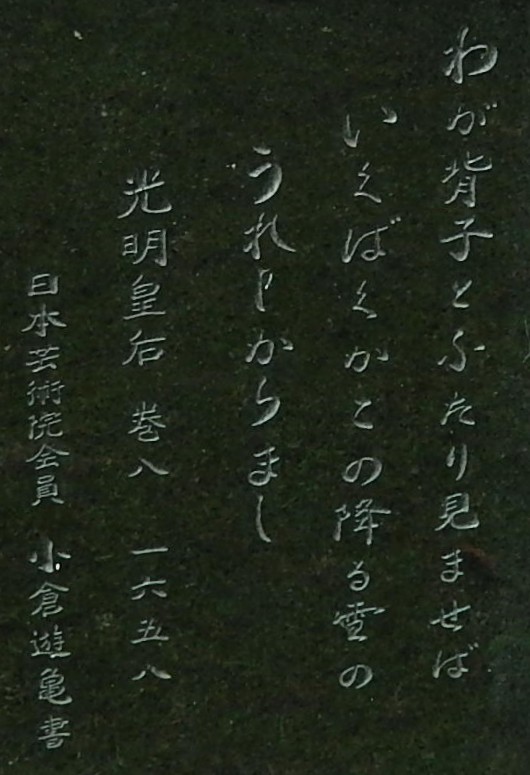 わが背子とふたり見ませば
いくばくかこの降る雪の
うれしからまし
光明皇后 巻八 一六五八
日本芸術院会員 小倉遊亀書